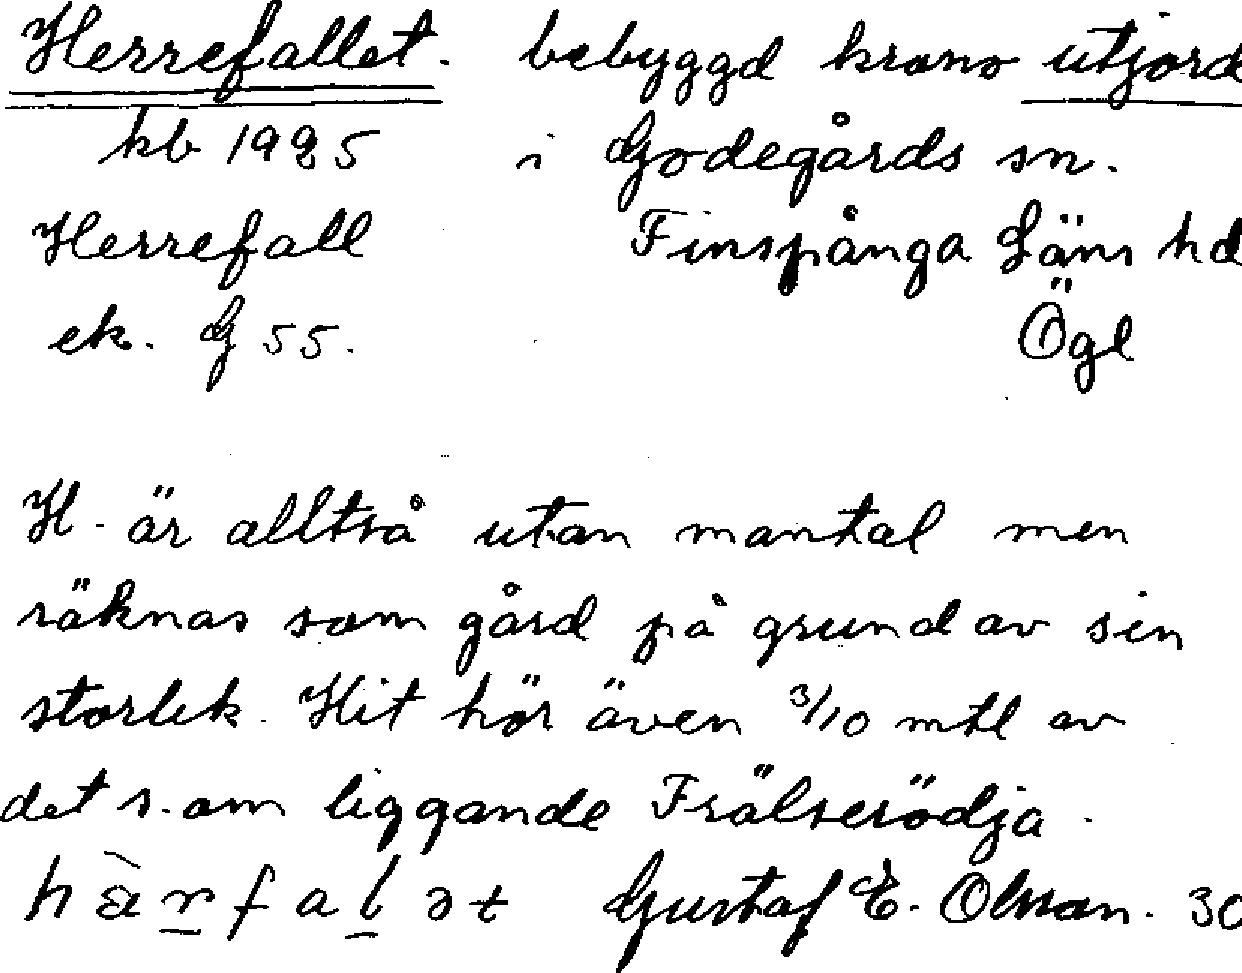 Herrefallet. bebyggd krono utjord
kb 1925 i Godegårds sn.
Herrefall Finspånga Läns hd
ek. G 55. Ögl
H. är alltså utan mantal men
räknas som gård på grund av sin
storlek. Hit hör även 3/10 mtl av
det s.om liggande Frälserödja.
hàrfalət Gustaf E. Olsson. 30